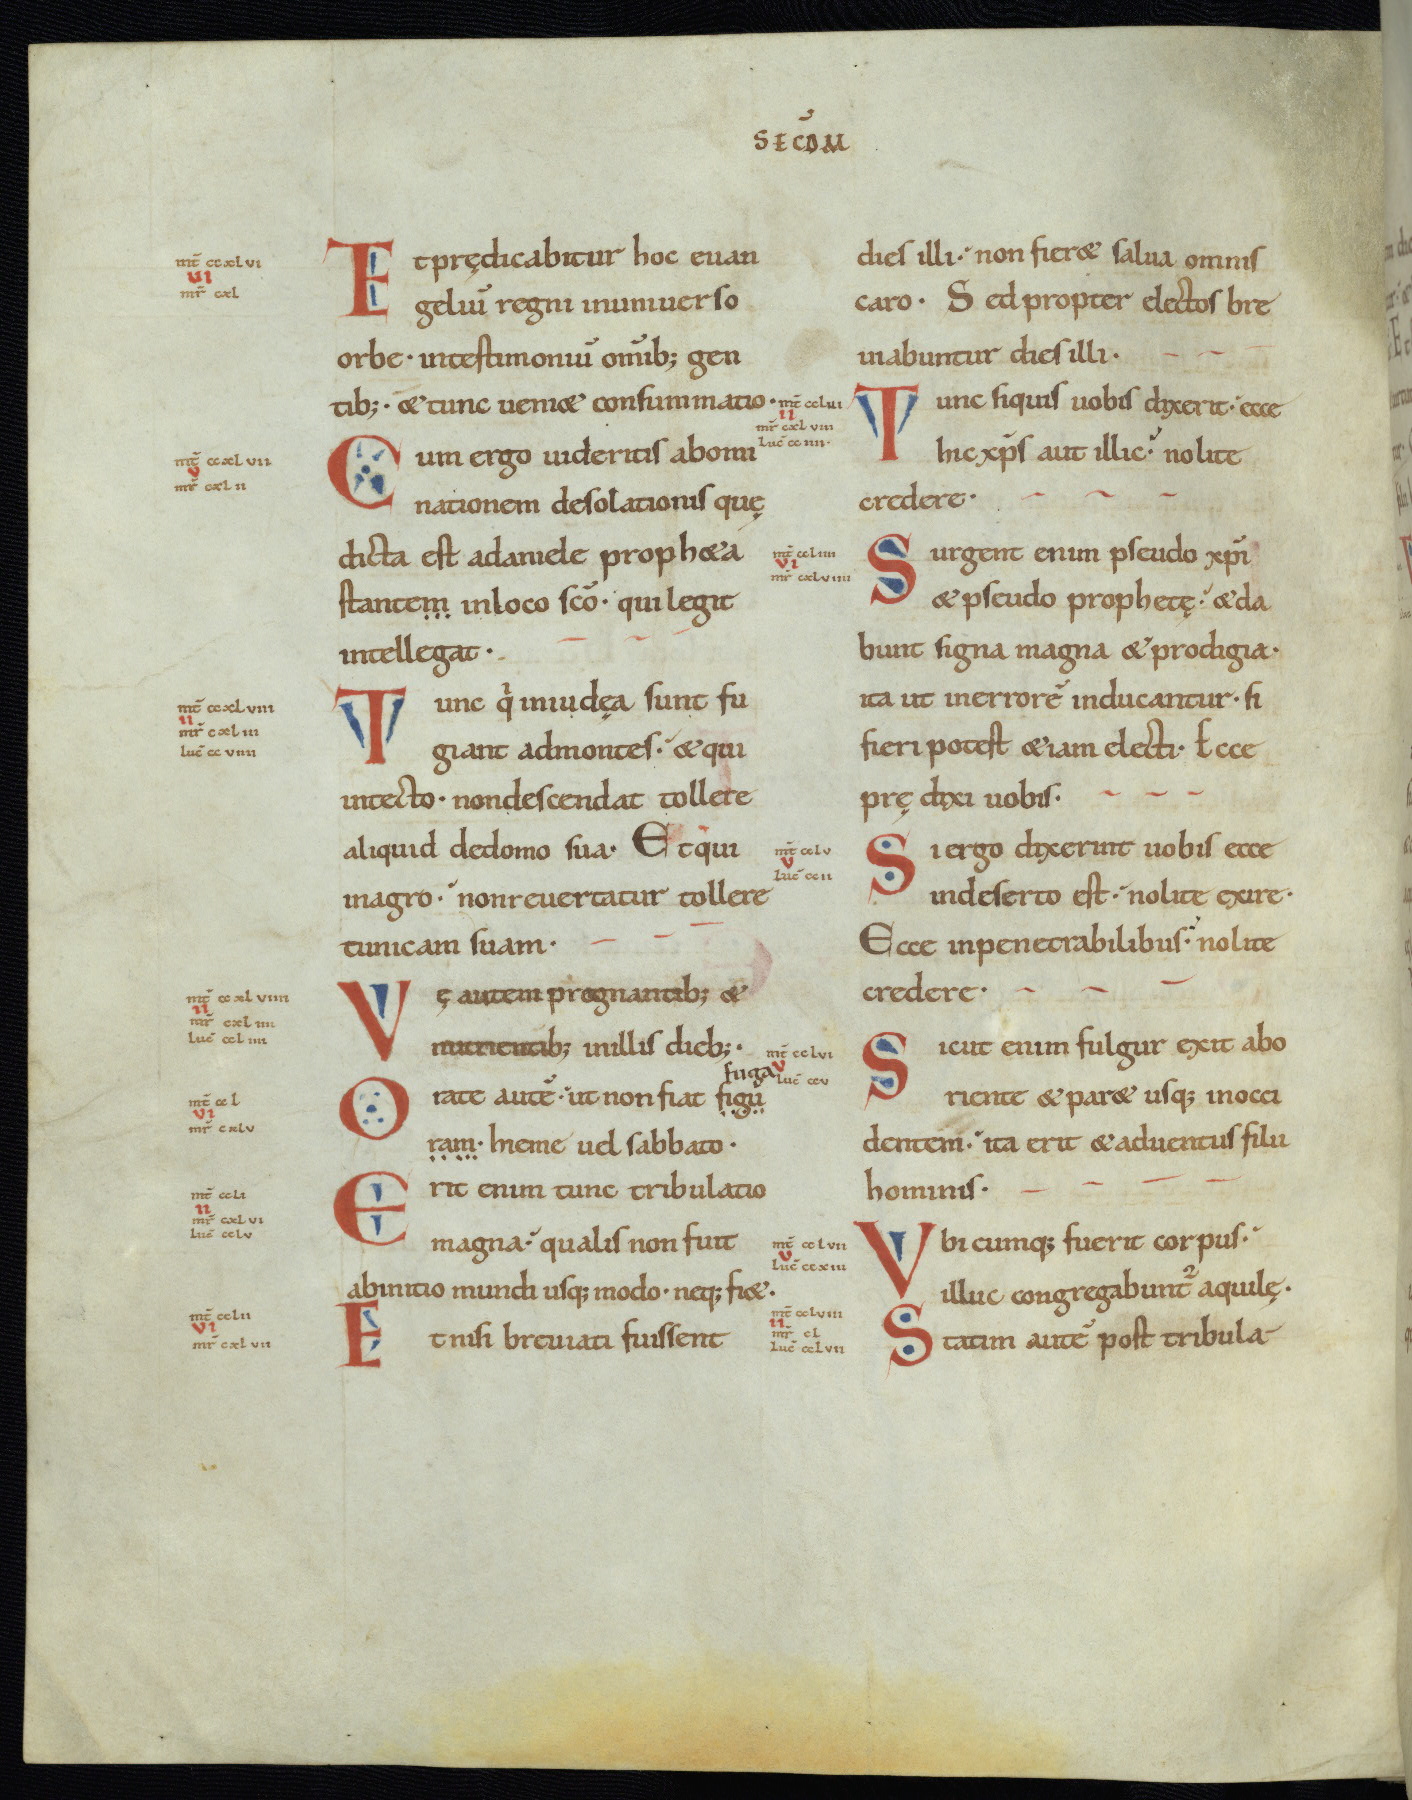 SECD̄M
mt̄ ccxlvi
vi
mr̄ cxl
Et prędicabitur hoc euan
geliū regni inuniuerso
orbe· intestimoniū om̄ib; gen
tib;· & tunc ueni& consummatio·
mt̄ ccxlvii
v
mr̄ cxlii
Cum ergo uideritis abomi
nationem desolationis quę
dicta est adaniele proph&a
stantem inloco scō· qui legit
intellegat·
mt̄ ccxlviii
ii
mr̄ cxliii
luc̄ ccviiii
Tunc qi iniudęa sunt fu
giant admontes· & qui
intecto· nondescendat tollere
aliquid dedomo sua· Et qui
inagro· nonreuertatur tollere
tunicam suam·
mt̄ ccxlviiii
ii
mr̄ cxliiii
luc̄ ccliiii
Vę autem pregnantib; &
nutrientib; inillis dieb;·
mt̄ ccl
vi
mr̄ cxlv
fuga
Orate autē· ut non fiat figu
ram· hieme uel sabbato·
mt̄ ccli
ii
mr̄ cxlvi
luc̄ cclv
Erit enim tunc tribulatio
magna· qualis non fuit
abinitio mundi usq; modo· neq; fi&·
mt̄ cclii
vi
mr̄ cxlvii
Et nisi breuiati fuissent
dies illi· non fier& salua omnis
caro· Sed propter electos bre
uiabuntur dies illi·
mt̄ ccliii
ii
mr̄ cxlviii
luc̄ cciiii·
Tunc siquis uobis dixerit· ecce
hic xp̄s aut illic· nolite
credere·
mt̄ ccliiii
vi
mr̄ cxlviiii
Surgent enim pseudo xp̄i
& pseudo prophetę· & da
bunt signa magna & prodigia·
ita ut inerrorē inducantur· si
fieri potest &iam electi· Ecce
prędixi uobis·
mt̄ cclv
v
luc̄ ccii
Si ergo dixerint uobis ecce
indeserto est· nolite exire·
Ecce inpenetrabilibus· nolite
credere·
mt̄ cclvi
v
luc̄ ccv
Sicut enim fulgur exit abo
riente & par& usq; inocci
dentem· ita erit & aduentus filii
hominis·
mt̄ cclvii
v
luc̄ ccxiii
Vbi cumq; fuerit corpus·
illuc congregabunt᷑ aquilę·
mt̄ cclviii
ii
mr̄ cl
luc̄ cclvii
Statim autē post tribula